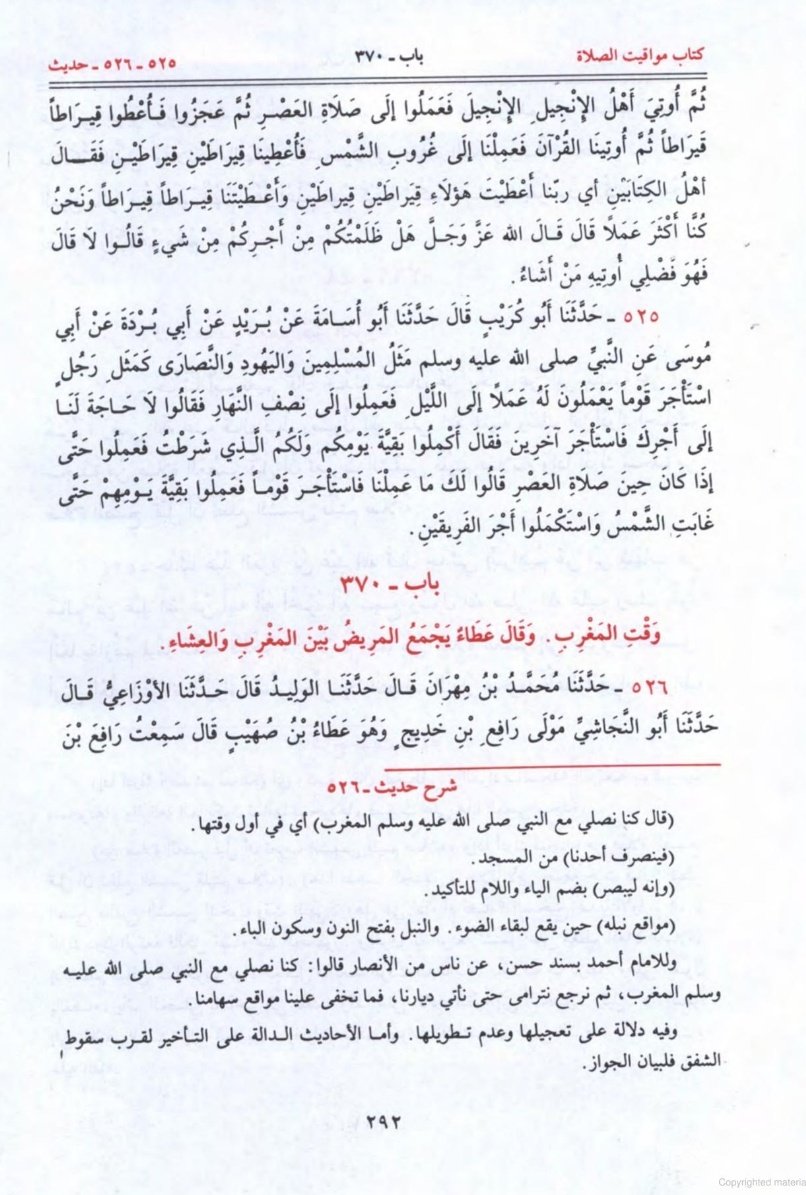 كتاب مواقيت الصلاة باب ـ ٣٧٠ ٥٢٥ ـ ٥٢٦ ـ حديث
ثُمَّ أُوتِيَ أَهْلُ الإِنْجِيلِ الإِنْجِيلَ فَعَمَلُوا إلَى صَلَاةِ العَصْرِ ثُمَّ عَجَزُوا فَأُعْطُوا قِيرَاطاً
قِيَرَاطاً ثُمَّ أُوتِينَا القُرْآنَ فَعَمِلْنَا إلَى غُرُوبِ الشَّمْسِ فَأُعْطِينَا قِيرَاطَيْنِ قِيرَاطَيْنِ فَقَالَ
أهْلُ الكِتَابَيْنِ أي ربّنا أَعْطَيْت هَؤلَاءِ قِيرَاطَيْنِ قِيرَاطَيْنِ وَأعْطَيْتَنَا قِيرَاطاً قِيرَاطاً وَنَحْنُ
كُنَّا أَكْثَرَ عَمَلًا قَالَ قَالَ الله عَزَّ وَجَلَّ هَلْ ظَلَمْتُكُمْ مِنْ أَجْرِكُمْ مِنْ شَيءٍ قَالُوا لاَ قَالَ
فَهُوَ فَضْلِي أُوتِيهِ مَنْ أَشَاءُ.
٥٢٥ ـ حَدَّثَنَا أَبُو كُرَيْبٍ قَالَ حَدَّثَنَا أَبُو أُسَامَةَ عَنْ بُرَيْدٍ عَنْ أَبِي بُرْدَةَ عَنْ أَبِي
مُوسَى عَنِ النَّبيِّ صلى الله عليه وسلم مَثَلُ المُسْلِمِينَ وَاليَهُودِ وَالنَّصَارَى كَمَثَلِ رَجُلٍ
اسْتَأْجَرَ قَوْماً يَعْمَلُونَ لَهُ عَمَلًا إلَى اللَّيْلِ فَعَمِلُوا إلَى نِصْفِ النَّهَارِ فَقَالُوا لاَ حَاجَةَ لَنَا
إلَى أَجْرِكَ فَاسْتَأْجَرَ آخَرِينَ فَقَالَ أَكْمِلُوا بَقِيَّةَ يَوْمِكُم وَلَكُمُ الَّذِي شَرَطْتُ فَعَمِلُوا حَتَّى
إذَا كَانَ حِينَ صَلَاةِ العَصْرِ قَالُوا لَكَ مَا عَمِلْنَا فَاسْتَأْجَرَ قَوْماً فَعَمِلُوا بَقِيَّةَ يَوْمِهِمْ حَتَّى
غَابَتِ الشَّمْسُ وَاسْتَكْمَلُوا أَجْرَ الفَرِيقَيْنِ.
باب ـ ٣٧٠
وَقْتِ المَغْرِبِ. وَقَالَ عَطَاءٌ يَجْمَعُ المَرِيضُ بَيْنَ المَغْرِبِ وَالعِشَاءِ.
٥٢٦ ـ حَدَّثَنَا مُحَمَّدُ بْنُ مِهْرَانَ قَالَ حَدَّثَنَا الوَلِيدُ قَالَ حَدَّثَنَا الأَوْزَاعِيُّ قَالَ
حَدَّثَنَا أَبُو النَّجَاشِيِّ مَوْلَى رَافِعِ بْنِ خَدِيجٍ وَهُوَ عَطَاءُ بْنُ صُهَيْبٍ قَالَ سَمِعْتُ رَافِعَ بْنَ
شرح حديث ـ ٥٢٦
(قال كنا نصلي مع النبي صلى الله عليه وسلم المغرب) أي في أول وقتها.
(فينصرف أحدنا) من المسجد.
(وإنه ليبصر) بضم الياء واللام للتأكيد.
(مواقع نبله) حين يقع لبقاء الضوء. والنبل بفتح النون وسكون الباء.
وللامام أحمد بسند حسن، عن ناس من الأنصار قالوا: كنا نصلي مع النبي صلى الله عليه
وسلم المغرب، ثم نرجع نترامى حتى نأتي ديارنا، فما تخفى علينا مواقع سهامنا.
وفيه دلالة على تعجيلها وعدم تطويلها. وأما الأحاديث الدالة على التأخير لقرب سقوط
الشفق فلبيان الجواز.
٢٩٢
Copyrighted materia